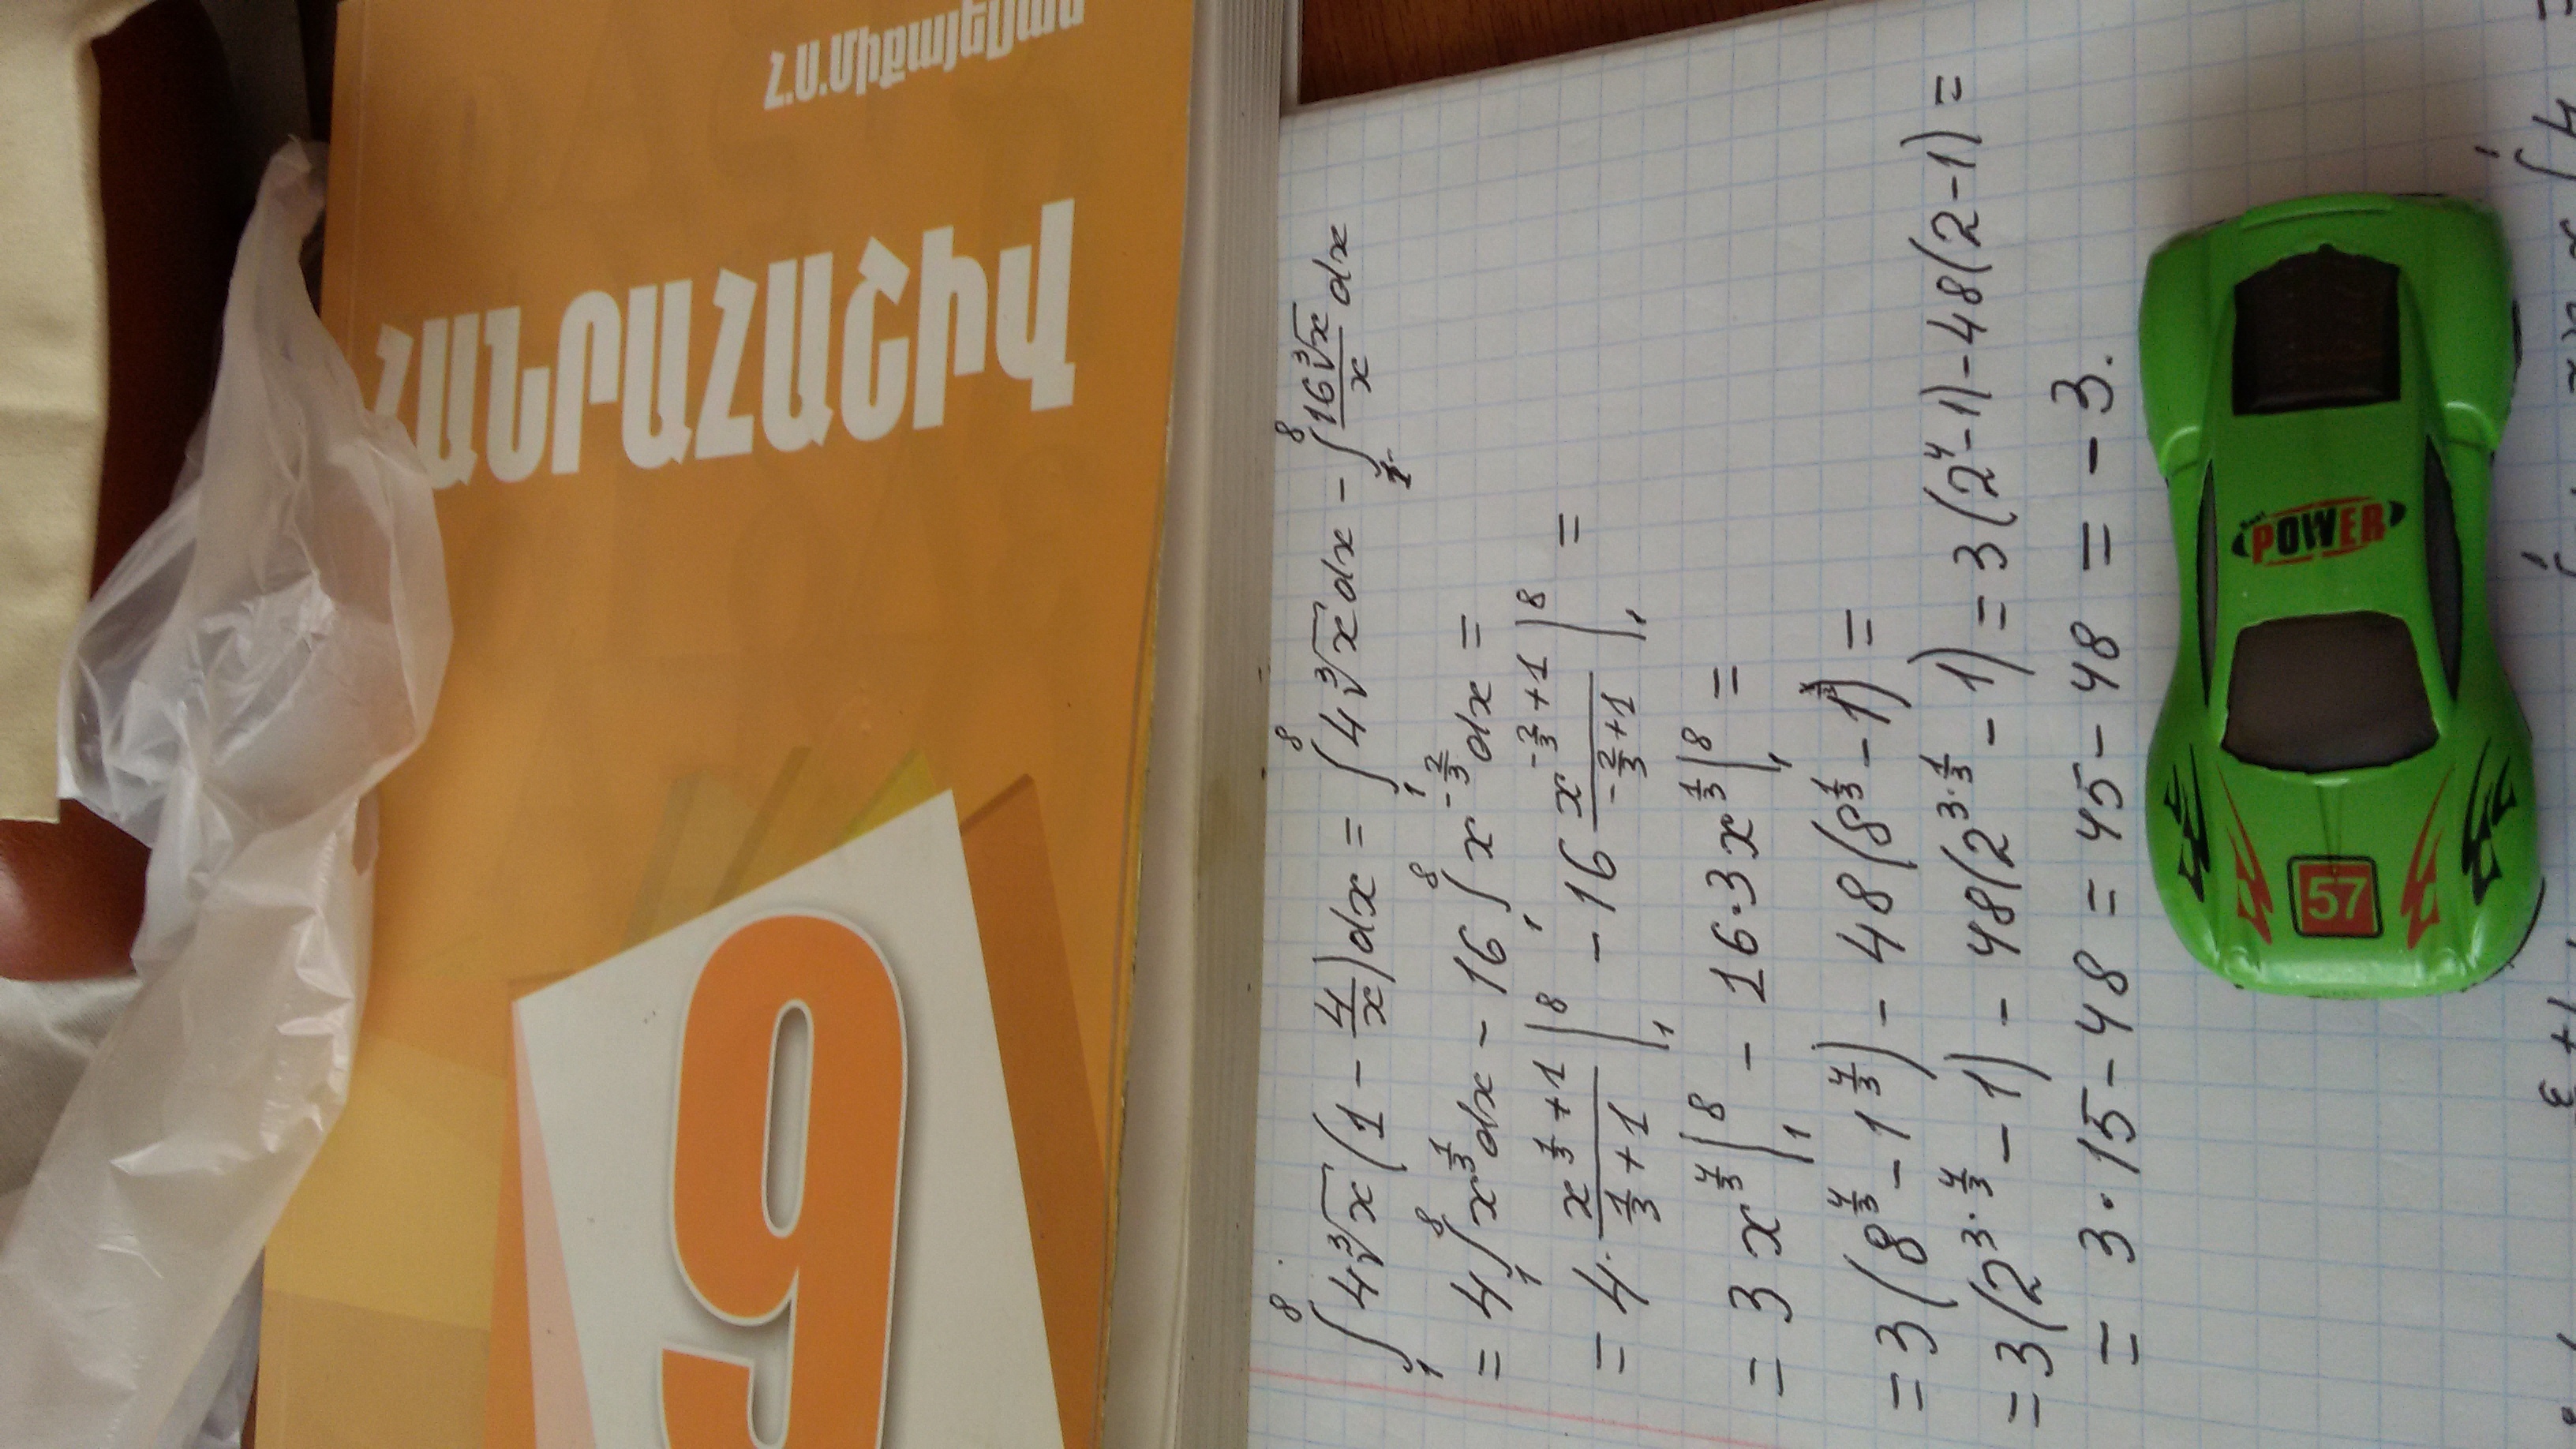 Հ.Ս.Միքայելյան
ՀԱՆՐԱՀԱՇԻՎ
9
∫₁⁸ 4∛x (1 - 4/x) dx = ∫₁⁸ 4∛x dx - ∫₁⁸ 16∛x/x dx
= 4 ∫₁⁸ x^(1/3) dx - 16 ∫₁⁸ x^(-2/3) dx =
= 4 · x^(1/3+1)/(1/3+1) |₁⁸ - 16 x^(-2/3+1)/(-2/3+1) |₁⁸ =
= 3 x^(4/3) |₁⁸ - 16·3 x^(1/3) |₁⁸ =
= 3(8^(4/3) - 1^(4/3)) - 48(8^(1/3) - 1^(1/3)) =
= 3(2^(3·4/3) - 1) - 48(2^(3·1/3) - 1) = 3(2⁴-1) - 48(2-1) =
= 3·15 - 48 = 45 - 48 = -3.
POWER
57